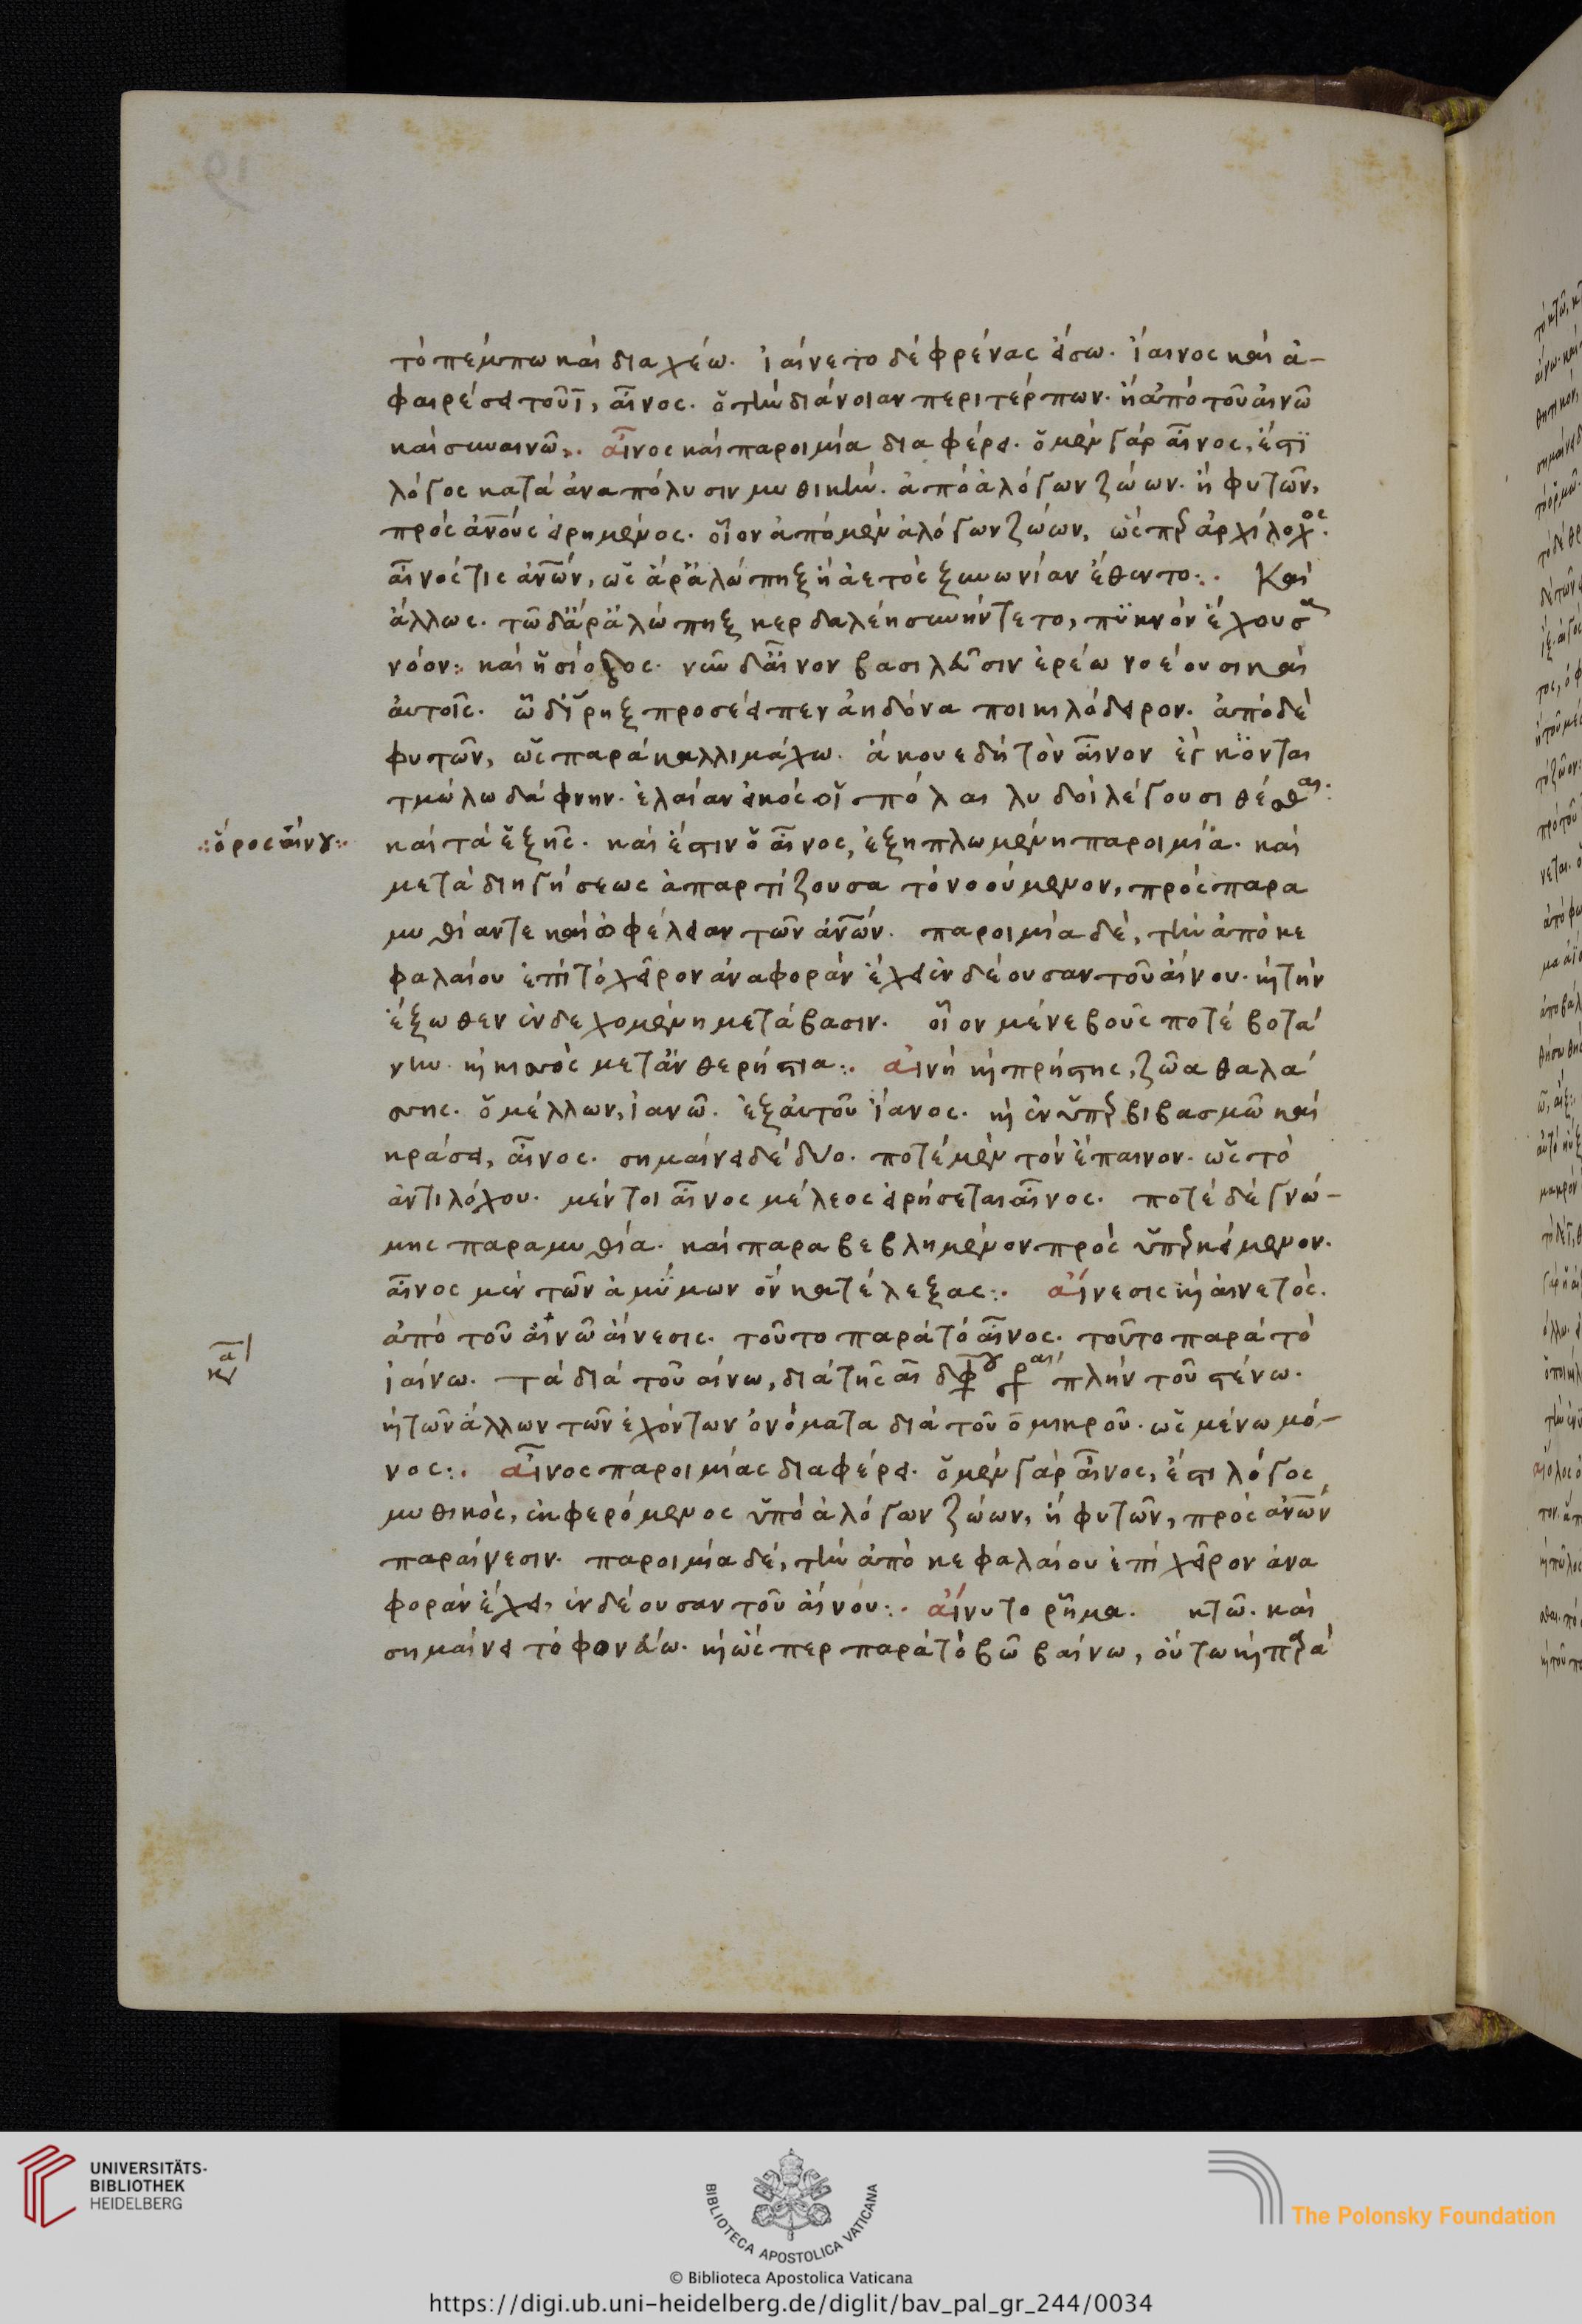 τὸ πέμπω καὶ διαχέω. ἰαίνετο δὲ φρένας εἴσω. ἴαινος καὶ ἀ-
φαιρέσει τοῦ ῑ, αἶνος. ὁ τὴν διάνοιαν περιτέρπων. ἢ ἀπὸ τοῦ αἰνῶ
καὶ συναινῶ:. αἶνος καὶ παροιμία διαφέρει. ὁ μὲν γὰρ αἶνος, ἐστὶ
λόγος κατὰ ἀναπόλυσιν μυθικὴν. ἀπὸ ἀλόγων ζώων. ἢ φυτῶν,
πρὸς ἀν̅ους εἰρημένος. οἷον ἀπὸ μὲν ἀλόγων ζώων, ὡς πρ ἀρχίλοχος.
αἶνός τις ἀν̅ων, ὡς ἄρ' ἀλώπηξ ἢ ἀετὸς ξυνωνίαν ἔθεντο:. Καὶ
ἄλλως. τῶ δ' ἄρ' ἀλώπηξ κερδαλέη συνήντετο, πυκνὸν ἔχουσα
νόον: καὶ ἡσίοδος. νῦν δ' αἶνον βασιλεῦσιν ἐρέω νοέουσι καὶ
αὐτοῖς. ὧδ' ἴρηξ προσέειπεν ἀηδόνα ποικιλόδειρον. ἀπὸ δὲ
φυτῶν, ὡς παρὰ καλλιμάχω. ἄκουε δὴ τὸν αἶνον ἔγκοντας
τμώλω δάφνην. ἐλαίαν εἰκὸς οἳ πόλαι λυδοὶ λέγουσι θέσθαι:
:ὅρος αἴνου:.
καὶ τὰ ἑξῆς. καὶ ἔστιν ὁ αἶνος, ἐξηπλωμένη παροιμία. καὶ
μετὰ διηγήσεως ἀπαρτίζουσα τὸ νοούμενον, πρὸς παρα
μυθίαν τε καὶ ὀφέλειαν τῶν ἀν̅ων. παροιμία δὲ, τὴν ἀπὸ κε
φαλαίου ἐπὶ τὸ χεῖρον ἀναφορὰν ἔχει ἐνδέουσαν τοῦ αἴνου. κ τὴν
ἔξωθεν ἐνδεχομένη μετάβασιν. οἷον μένε βοῦς ποτὲ βοτά
νην. κ κυνὸς μετ' ἀνθερήστια:. αἰνὴ κ πρήστης, ζῶα θαλά
σσης. ὁ μέλλων, ἰανῶ. ἐξ αὐτοῦ ἴανος. κ ἐν ὑπρβιβασμῶ καὶ
κράσει, αἶνος. σημαίνει δὲ δύο. ποτὲ μὲν τὸν ἔπαινον. ὡς τὸ
ἀντιλόχου. μέντοι αἶνος μέλεος εἰρήσεται αἶνος. ποτὲ δὲ γνώ-
μης παραμυθία. καὶ παραβεβλημένον πρὸς ὑπρκείμενον.
αἶνος μὲν τῶν ἀμύμων ὃν κατέλεξας:. αἴνεσις κ αἰνετός.
ἀπὸ τοῦ αἰνῶ αἴνεσις. τοῦτο παρὰ τὸ αἶνος. τοῦτο παρὰ τὸ
ἰαίνω. τὰ διὰ τοῦ αίνω, διὰ τῆς αι δφ̅ου γραι πλὴν τοῦ στένω.
κ τῶν ἄλλων τῶν ἐχόντων ὀνόματα διὰ τοῦ ο̅ μικροῦ. ὡς μένω μό-
νος:. αἶνος παροιμίας διαφέρει. ὁ μὲν γὰρ αἶνος, ἐστι λόγος
μυθικὸς, ἐκφερόμενος ὑπὸ ἀλόγων ζώων, ἢ φυτῶν, πρὸς ἀν̅ων
παραίνεσιν. παροιμία δὲ, τὴν ἀπὸ κεφαλαίου ἐπὶ χεῖρον ἀνα
φορὰν ἔχει, ἐνδέουσαν τοῦ αἴνου:. αἴνυτο ῥῆμα. κτῶ. καὶ
σημαίνει τὸ φονεύω. κ ὥσπερ παρὰ τὸ βῶ βαίνω, οὕτω κ πρὰ
UNIVERSITÄTS-
BIBLIOTHEK
HEIDELBERG
BIBLIOTECA APOSTOLICA VATICANA
The Polonsky Foundation
© Biblioteca Apostolica Vaticana
https://digi.ub.uni-heidelberg.de/diglit/bav_pal_gr_244/0034